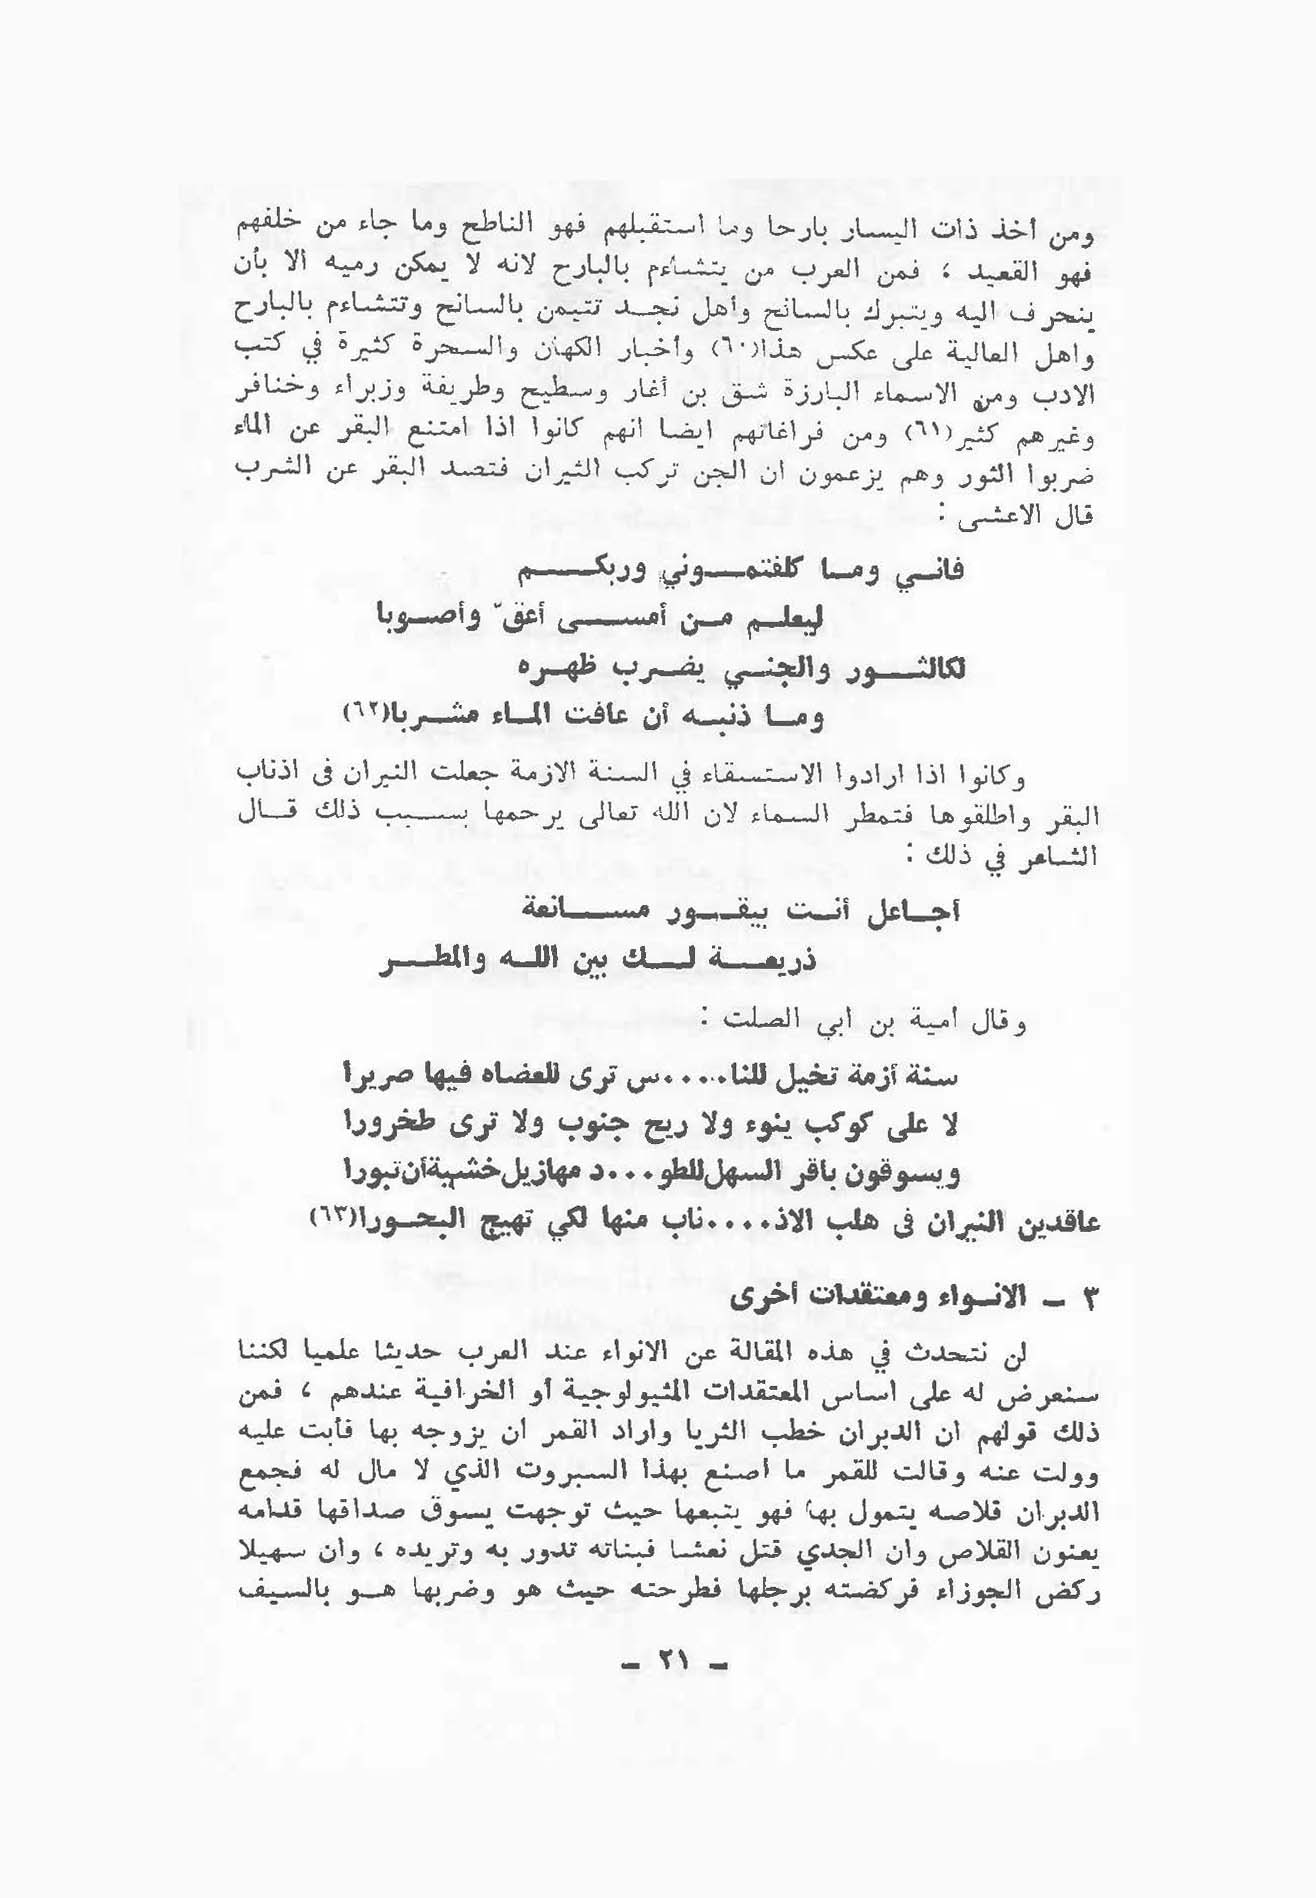 ومن أخذ ذات اليسار بارحا وما استقبلهم فهو الناطح وما جاء من خلفهم
فهو القعيد ، فمن العرب من يتشاءم بالبارح لانه لا يمكن رميه الا بأن
ينحرف اليه ويتبرك بالسانح وأهل نجد تتيمن بالسانح وتتشاءم بالبارح
واهل العالية على عكس هذا(٦٠) وأخبار الكهان والسحرة كثيرة في كتب
الادب ومن الاسماء البارزة شق بن أغار وسطيح وطريفة وزبراء وخنافر
وغيرهم كثير(٦١) ومن فراغاتهم ايضا انهم كانوا اذا امتنع البقر عن الماء
ضربوا الثور وهم يزعمون ان الجن تركب الثيران فتصد البقر عن الشرب
قال الاعشى :
فاني وما كلفتموني وربكم
ليعلم من أمسى أعقّ وأصوبا
لكالثور والجني يضرب ظهره
وما ذنبه أن عافت الماء مشربا(٦٢)
وكانوا اذا ارادوا الاستسقاء في السنة الازمة جعلت النيران فى اذناب
البقر واطلقوها فتمطر السماء لان الله تعالى يرحمها بسبب ذلك قال
الشاعر في ذلك :
أجاعل أنت بيقور مسانعة
ذريعة لك بين الله والمطر
وقال امية بن ابي الصلت :
سنة أزمة تخيل للنا.....س ترى للعضاه فيها صريرا
لا على كوكب ينوء ولا ريح جنوب ولا ترى طخرورا
ويسوقون باقر السهل للطو...د مهازيل خشية أن تبورا
عاقدين النيران فى هلب الاذ....ناب منها لكي تهيج البحورا(٦٣)
٣ - الانواء ومعتقدات أخرى
لن نتحدث في هذه المقالة عن الانواء عند العرب حديثا علميا لكننا
سنعرض له على اساس المعتقدات المثيولوجية أو الخرافية عندهم ، فمن
ذلك قولهم ان الدبران خطب الثريا واراد القمر ان يزوجه بها فأبت عليه
وولت عنه وقالت للقمر ما اصنع بهذا السبروت الذي لا مال له فجمع
الدبران قلاصه يتمول بها فهو يتبعها حيث توجهت يسوق صداقها قدامه
يعنون القلاص وان الجدي قتل نعشا فبناته تدور به وتريده ، وان سهيلا
ركض الجوزاء فركضته برجلها فطرحته حيث هو وضربها هو بالسيف
- ٢١ -